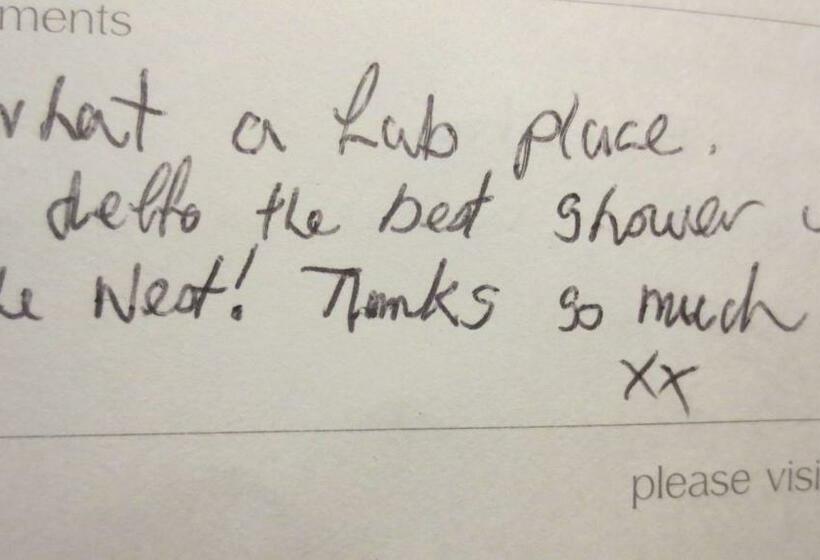 ments
what a fab place.
deffo the best shower
the West! Thanks so much
xx
please visi